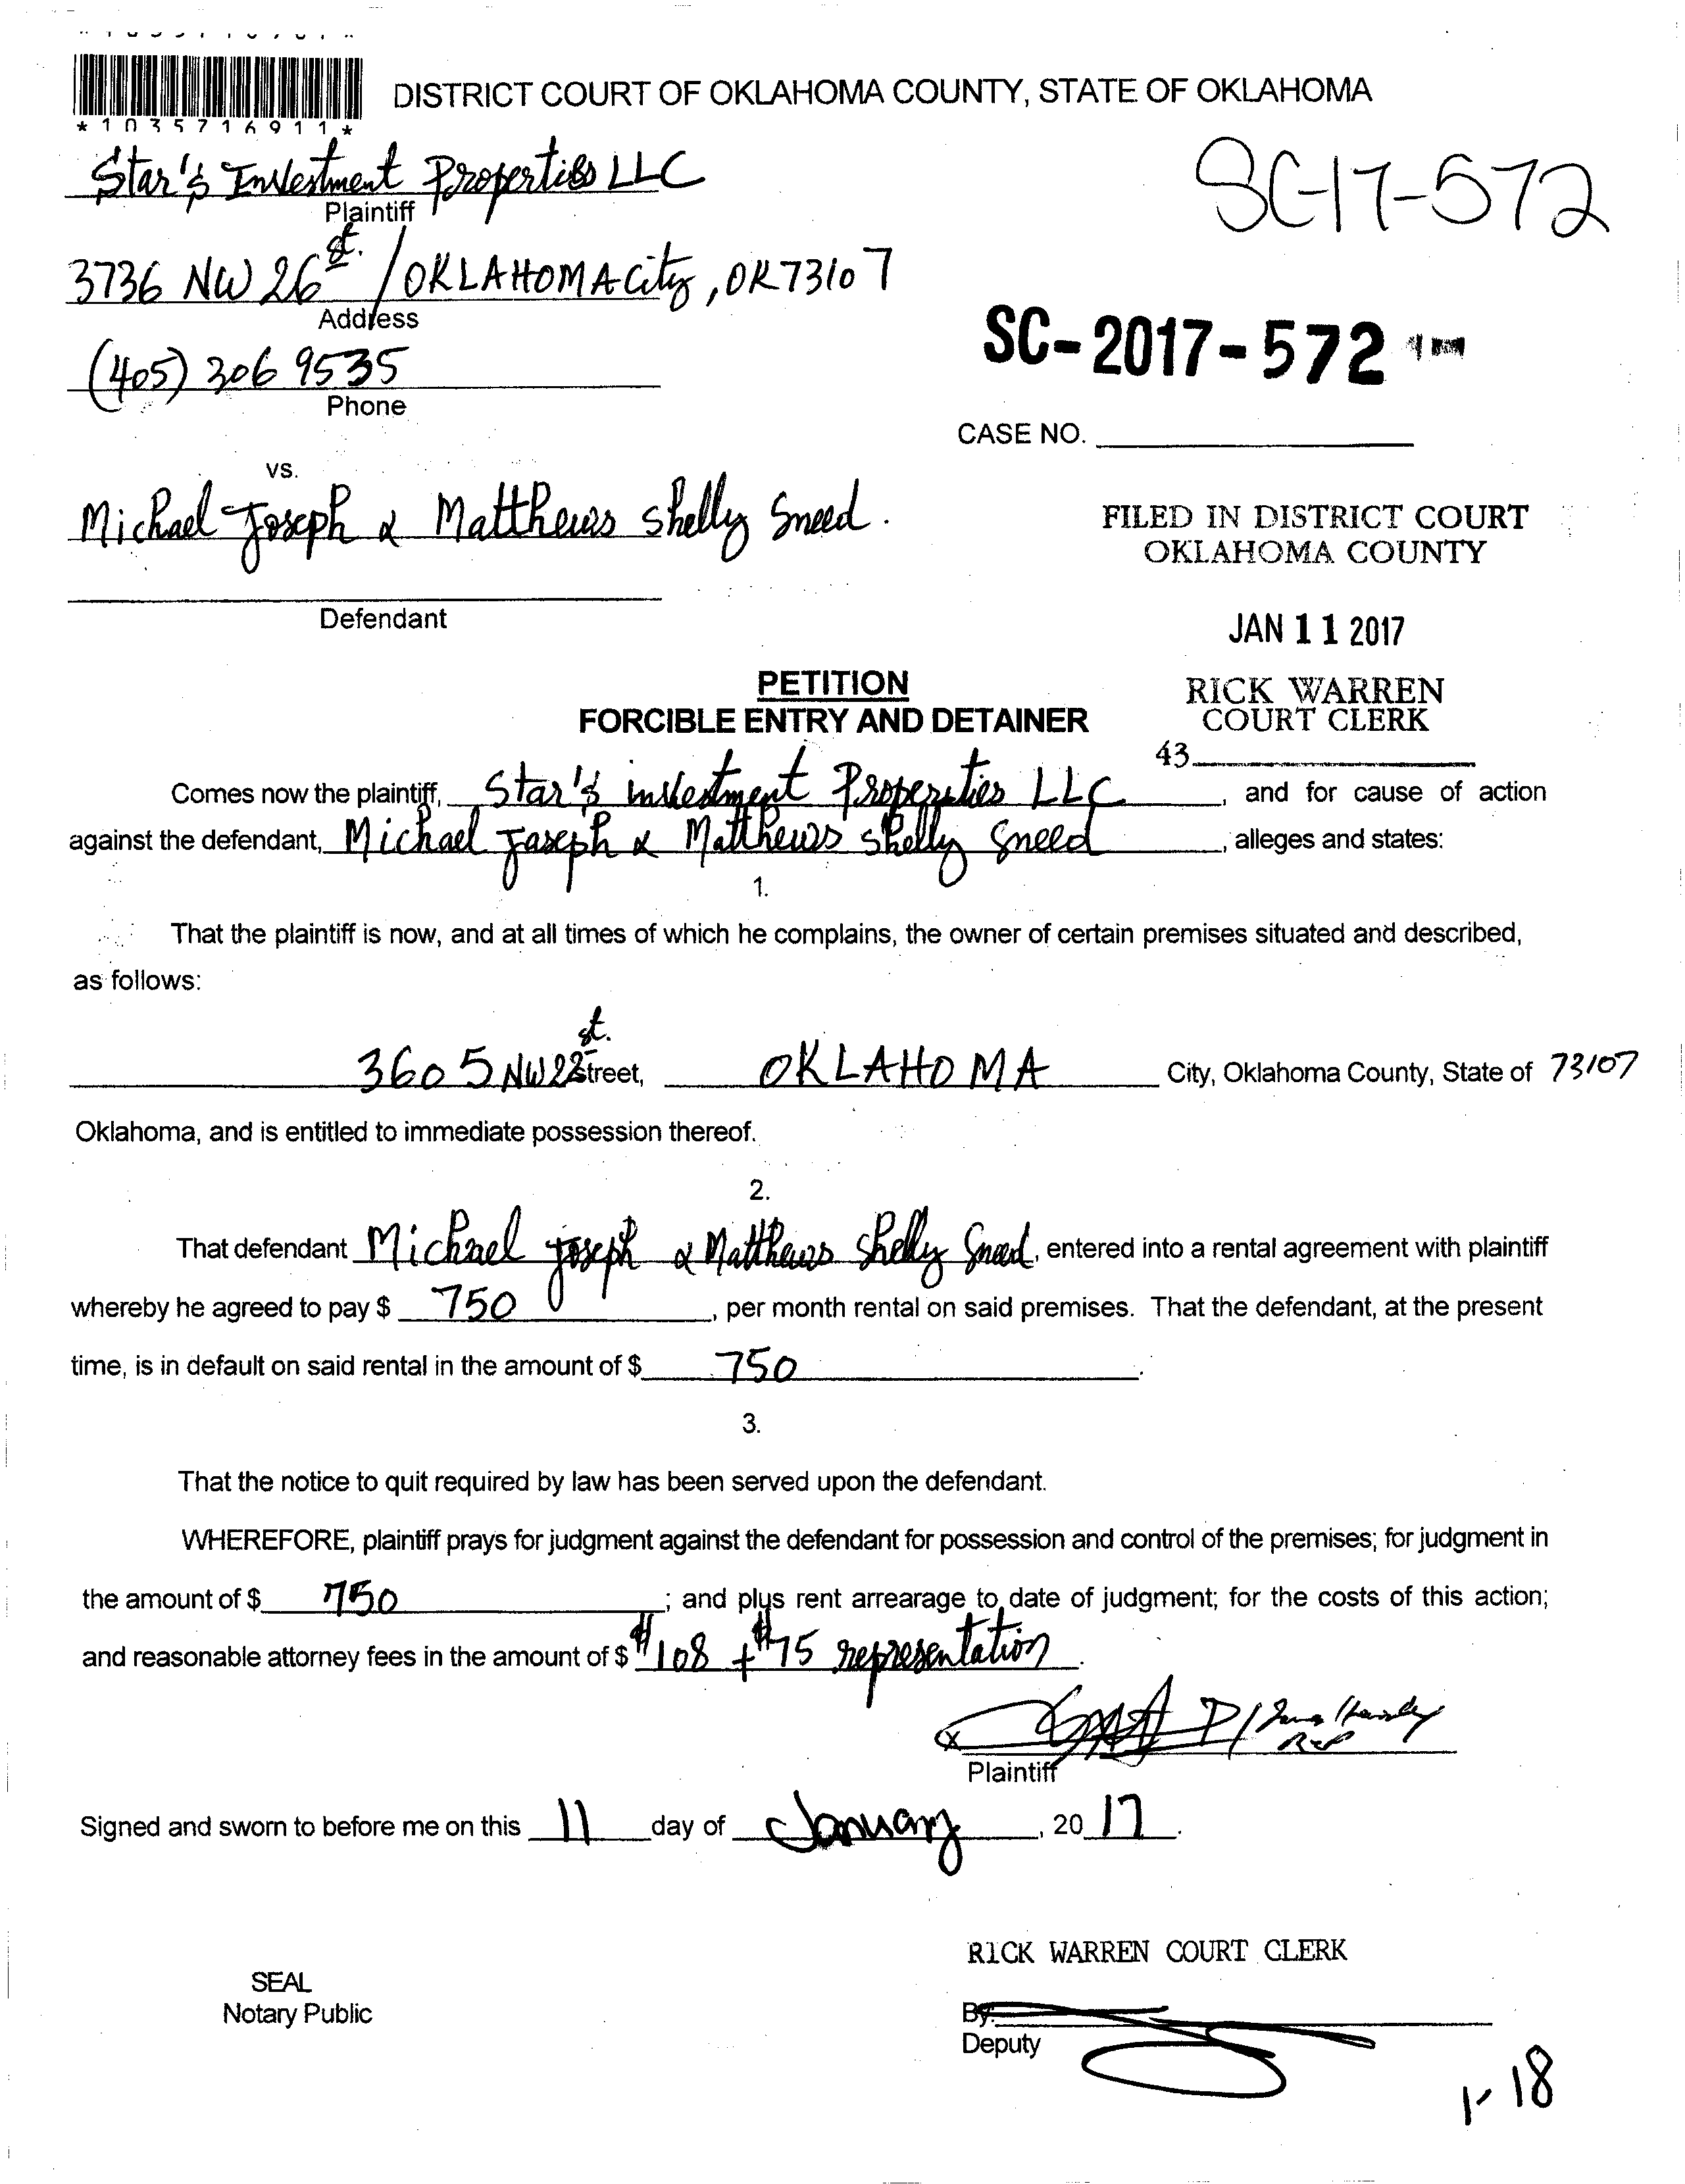 *1035716911*
DISTRICT COURT OF OKLAHOMA COUNTY, STATE OF OKLAHOMA
Star's Investment Properties LLC
Plaintiff
SC-17-572
3736 NW 26 st. / OKLAHOMA City, OK 73107
Address
SC-2017-572
(405) 306 9535
Phone
CASE NO.
vs.
Michael Joseph & Matthews Shelly Sneed.
FILED IN DISTRICT COURT
OKLAHOMA COUNTY
Defendant
JAN 11 2017
PETITION
FORCIBLE ENTRY AND DETAINER
RICK WARREN
COURT CLERK
43
Comes now the plaintiff, Star's investment Properties LLC, and for cause of action
against the defendant, Michael Joseph & Matthews Shelly Sneed, alleges and states:
1.
That the plaintiff is now, and at all times of which he complains, the owner of certain premises situated and described,
as follows:
3605 NW 22 st. Street, OKLAHOMA City, Oklahoma County, State of 73107
Oklahoma, and is entitled to immediate possession thereof.
2.
That defendant Michael Joseph & Matthews Shelly Sneed, entered into a rental agreement with plaintiff
whereby he agreed to pay $ 750, per month rental on said premises. That the defendant, at the present
time, is in default on said rental in the amount of $ 750.
3.
That the notice to quit required by law has been served upon the defendant.
WHEREFORE, plaintiff prays for judgment against the defendant for possession and control of the premises; for judgment in
the amount of $ 750; and plus rent arrearage to date of judgment; for the costs of this action;
and reasonable attorney fees in the amount of $ $108 + $75 representation.
x
Rep
Plaintiff
Signed and sworn to before me on this 11 day of January, 20 17.
RICK WARREN COURT CLERK
SEAL
Notary Public
By:
Deputy
1-18